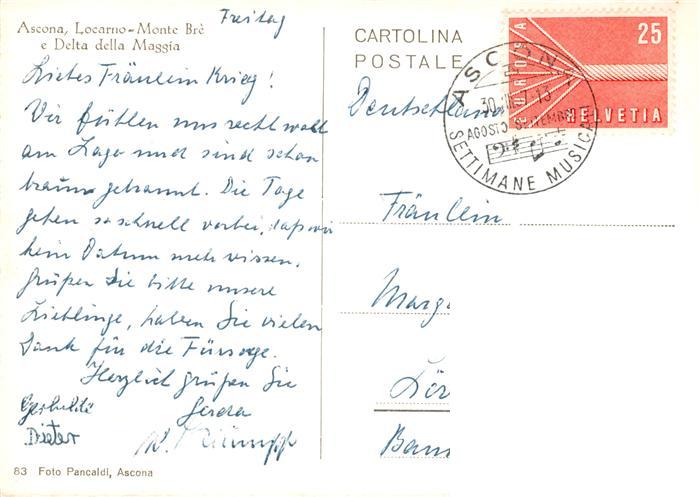 Freitag
Ascona, Locarno-Monte Brè
e Delta della Maggia
Liebes Fräulein Krieg!
Wir fühlen uns recht wohl
am Lago und sind schon
braun gebrannt. Die Tage
gehen so schnell vorbei, daß wir
kein Datum mehr wissen.
Grüßen Sie bitte unsere
Lieblinge, haben Sie vielen
Dank für die Fürsorge.
Herzlich grüßen Sie
Gerda
Dieter
83 Foto Pancaldi, Ascona
CARTOLINA
POSTALE
25
EUROPA
HELVETIA
ASCONA
AGOSTO SETTEMBRE
SETTIMANE MUSICALI
Deutschland
Fräulein
Marg
Lör